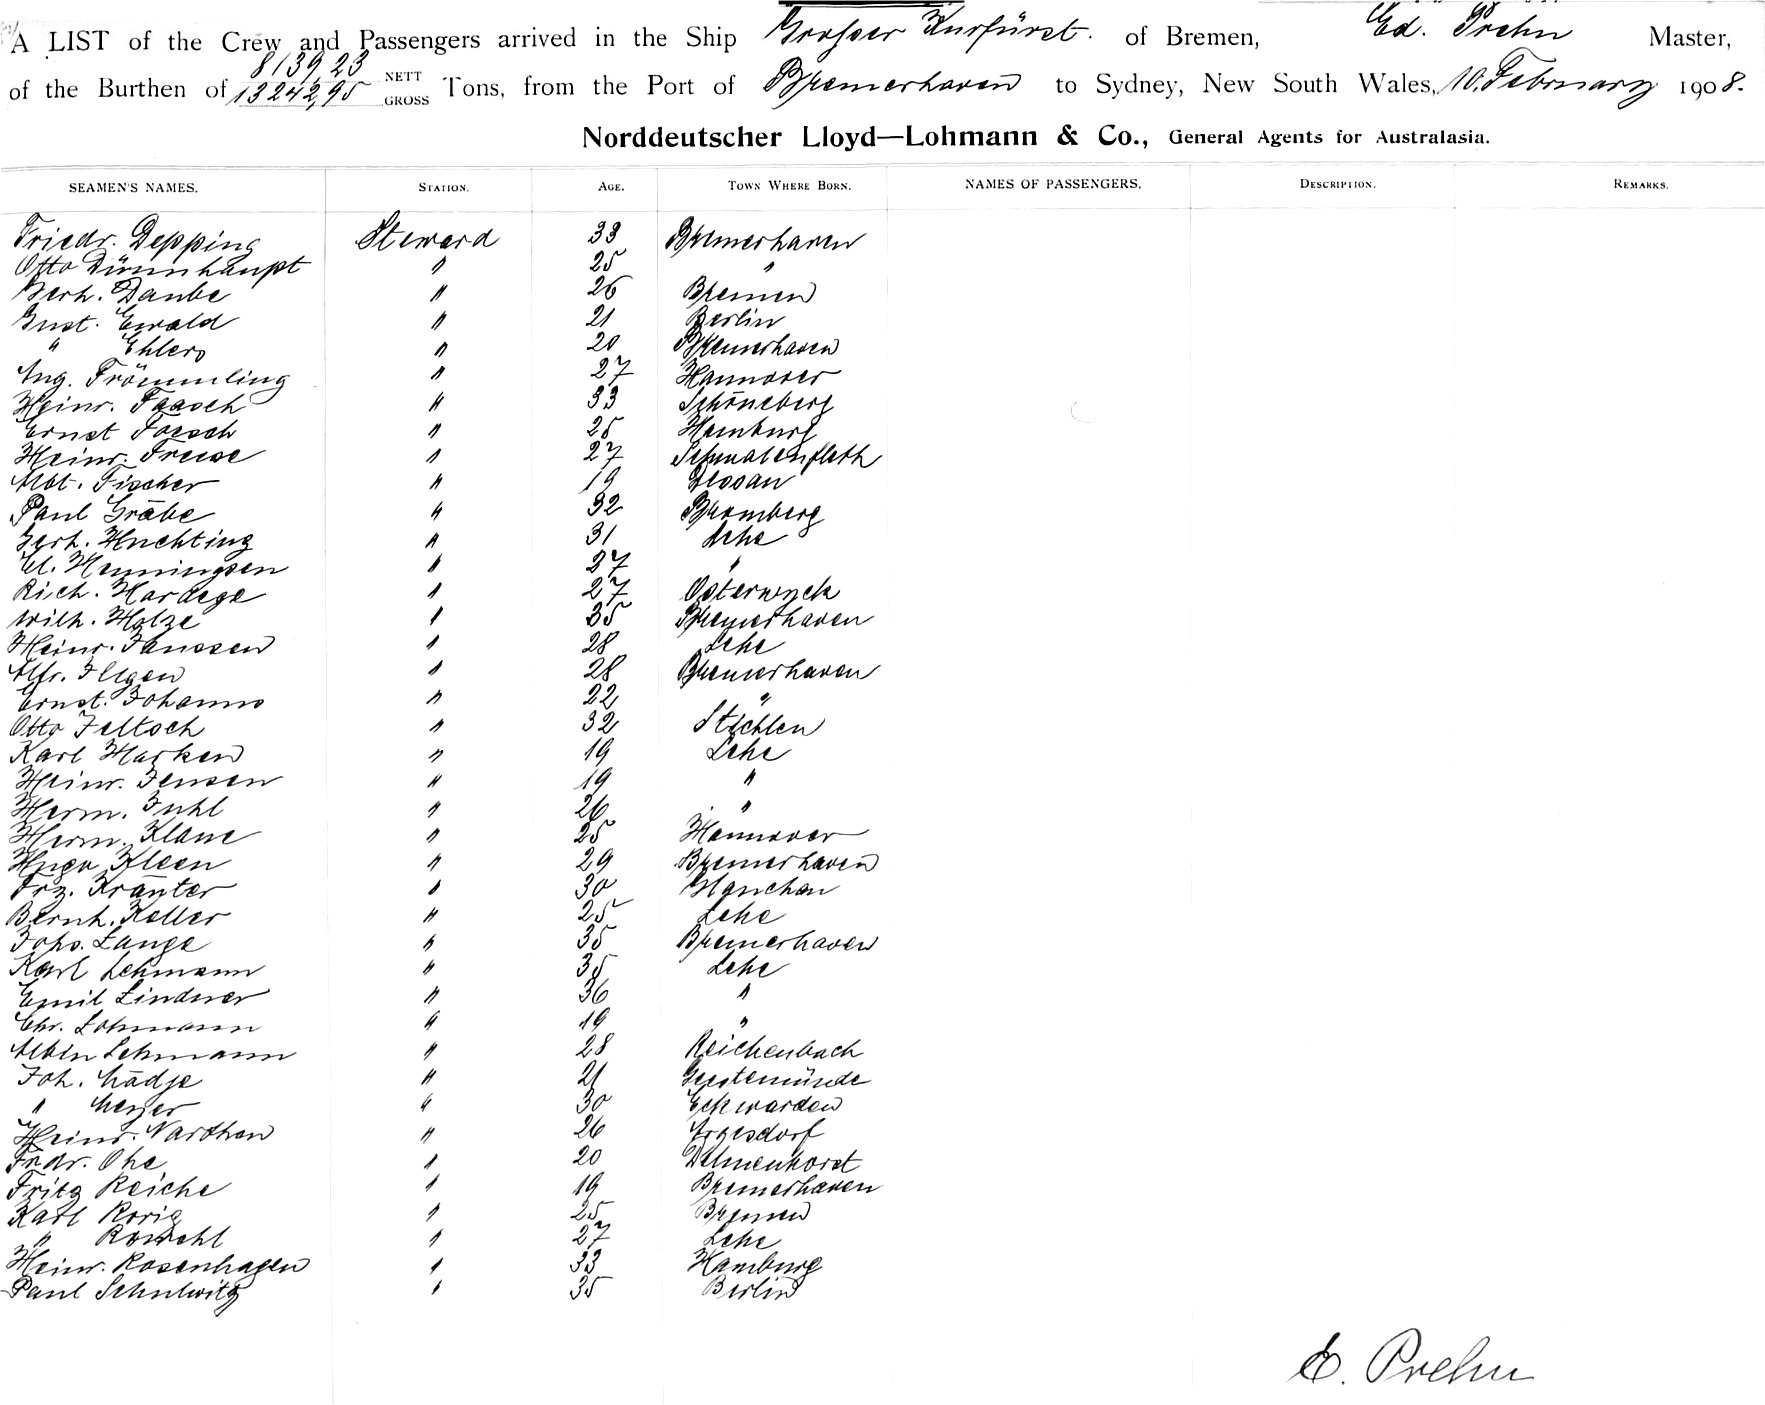 A LIST of the Crew and Passengers arrived in the Ship Grosser Kurfürst. of Bremen, Ed. Prehn Master,
of the Burthen of 8139,23 NETT 13242,95 GROSS Tons, from the Port of Bremerhaven to Sydney, New South Wales, 10. February 1908.
Norddeutscher Lloyd—Lohmann & Co., General Agents for Australasia.
SEAMEN'S NAMES. STATION. AGE. TOWN WHERE BORN. NAMES OF PASSENGERS. DESCRIPTION. REMARKS.
Friedr. Depping Steward 33 Bremerhaven
Otto Dünnhaupt " 25 "
Gerh. Daube " 26 Bremen
Gust. Ewald " 21 Berlin
" Ehlers " 20 Bremerhaven
Aug. Frömmling " 27 Hannover
Heinr. Faasch " 33 Schöneberg
Ernst Foesch " 25 Hamburg
Heinr. Frese " 27 Schmalenfleth
Alb. Fischer " 19 Dessau
Paul Gräbe " 32 Bromberg
Gerh. Huchting " 31 Lehe
Cl. Henningsen " 27 "
Rich. Hardege " 27 Osterwyck
Wilh. Holze " 35 Bremerhaven
Heinr. Janssen " 28 Lehe
Alfr. Illgen " 28 Bremerhaven
Ernst. Johanns " 22 "
Otto Jeltsch " 32
Karl Harken " 19 Lehe
Heinr. Jensen " 19 "
Herm. Juhl " 26 "
Herm. Klaue " 25 Hannover
Hugo Kleen " 29 Bremerhaven
Frz. Kräuter " 30
Bernh. Koller " 25 Lehe
Johs. Lange " 35 Bremerhaven
Karl Lehmann " 35 Lehe
Emil Lindner " 36 "
Chr. Lohmann " 19 "
Albin Lehmann " 28 Reichenbach
Joh. Lädje " 21 Geestemünde
" Meyer " 30 Eckwarden
Heinr. Narthen " 26
Frdr. Ohe " 20 Delmenhorst
Fritz Reiche " 19 Bremerhaven
Karl Rorig " 25 Bremen
" " 27 Lehe
Heinr. Rosenhagen " 33 Hamburg
Paul Schulwitz " 35 Berlin
E. Prehn